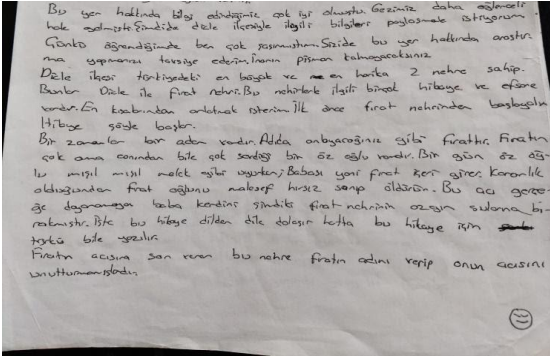 Bu yer hakkında bilgi edindiğimiz çok iyi olmuştu. Gezimiz daha eğlenceli
hale gelmişti. Şimdide dicle ilçesiyle ilgili bilgileri paylaşmak istiyorum.
Çünkü öğrendiğimde ben çok şaşırmıştım. Sizide bu yer hakkında araştır-
ma yapmanızı tavsiye ederim. İnanın pişman kalmayacaksınız
Dicle ilçesi türkiyedeki en büyük ve en harika 2 nehre sahip.
Bunlar Dicle ile fırat nehri. Bu nehirlerle ilgili birçok hikaye ve efsane
vardır. En kısabından anlatmak isterim. İlk önce fırat nehrinden başlayalım
Hikaye şöyle başlar.
Bir zamanlar bir adam vardır. Adıda anlıyacağınız gibi fırattır. Fıratın
çok ama canından bile çok sevdiği bir öz oğlu vardır. Bir gün öz oğ-
lu mışıl mışıl melek gibi uyurken; Babası yani fırat içeri girer. Karanlık
olduğundan fırat oğlunu malesef hırsız sanıp öldürür. Bu acı gerçe-
ğe dayanamayan baba kendini şimdiki fırat nehrinin azgın sularına bı-
rakmıştır. İşte bu hikaye dilden dile dolaşır hatta bu hikaye için
türkü bile yazılır.
Fıratın acısına son veren bu nehre fıratın adını verip onun acısını
unutturmamışlardır.